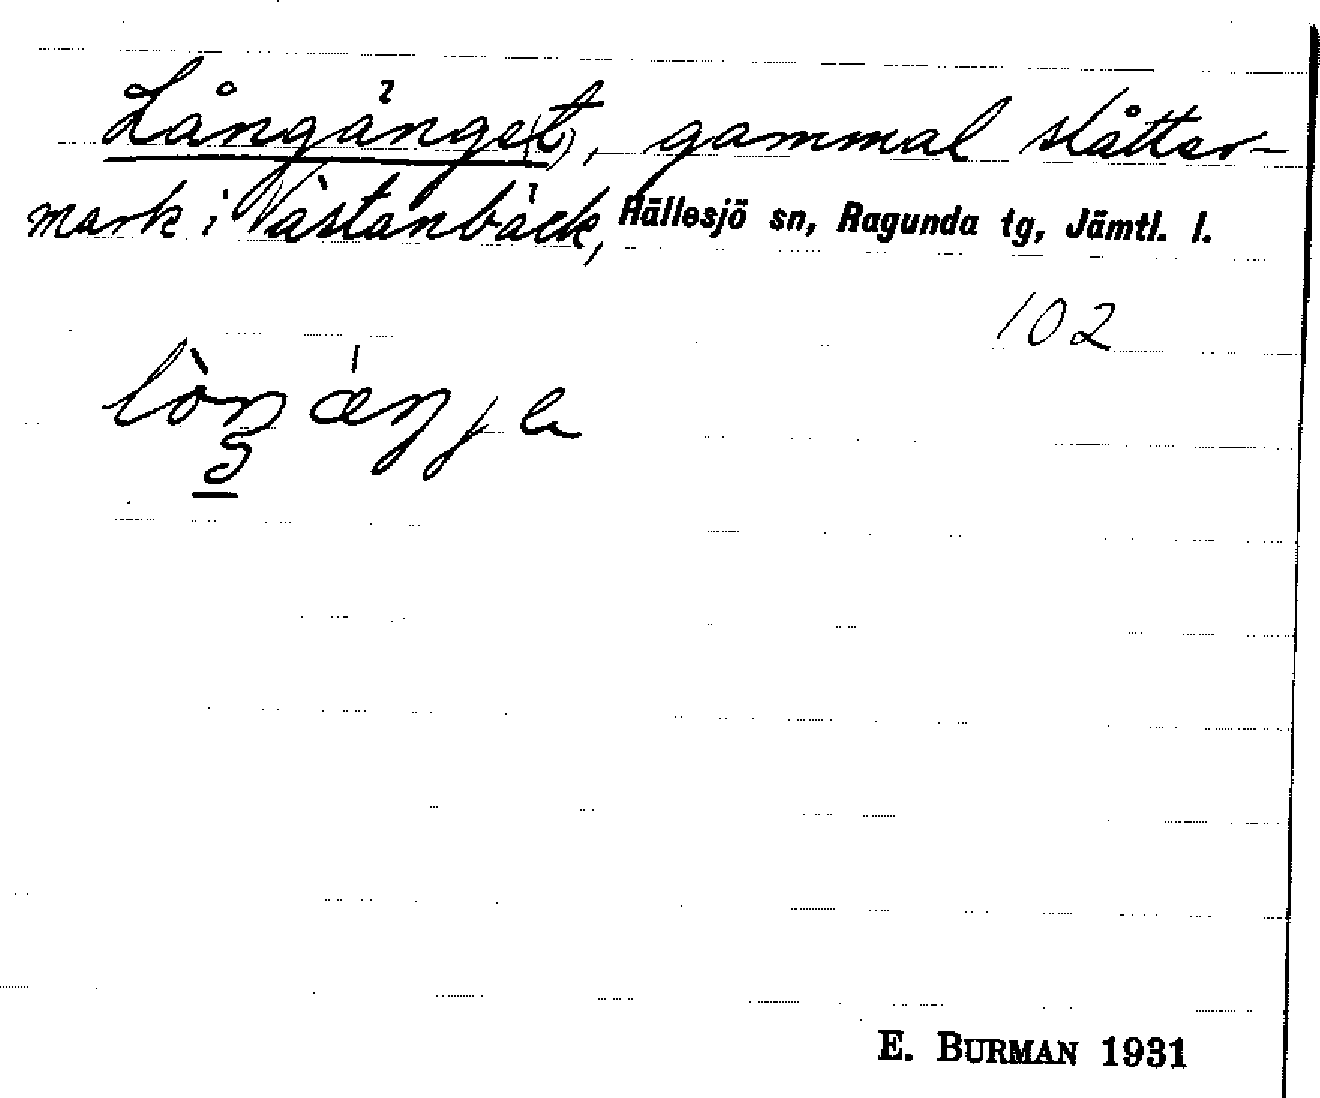 Långänge(t), gammal slåtter-
mark i Västanbäck, Hällesjö sn, Ragunda tg, Jämtl. l.
102
E. BURMAN 1931